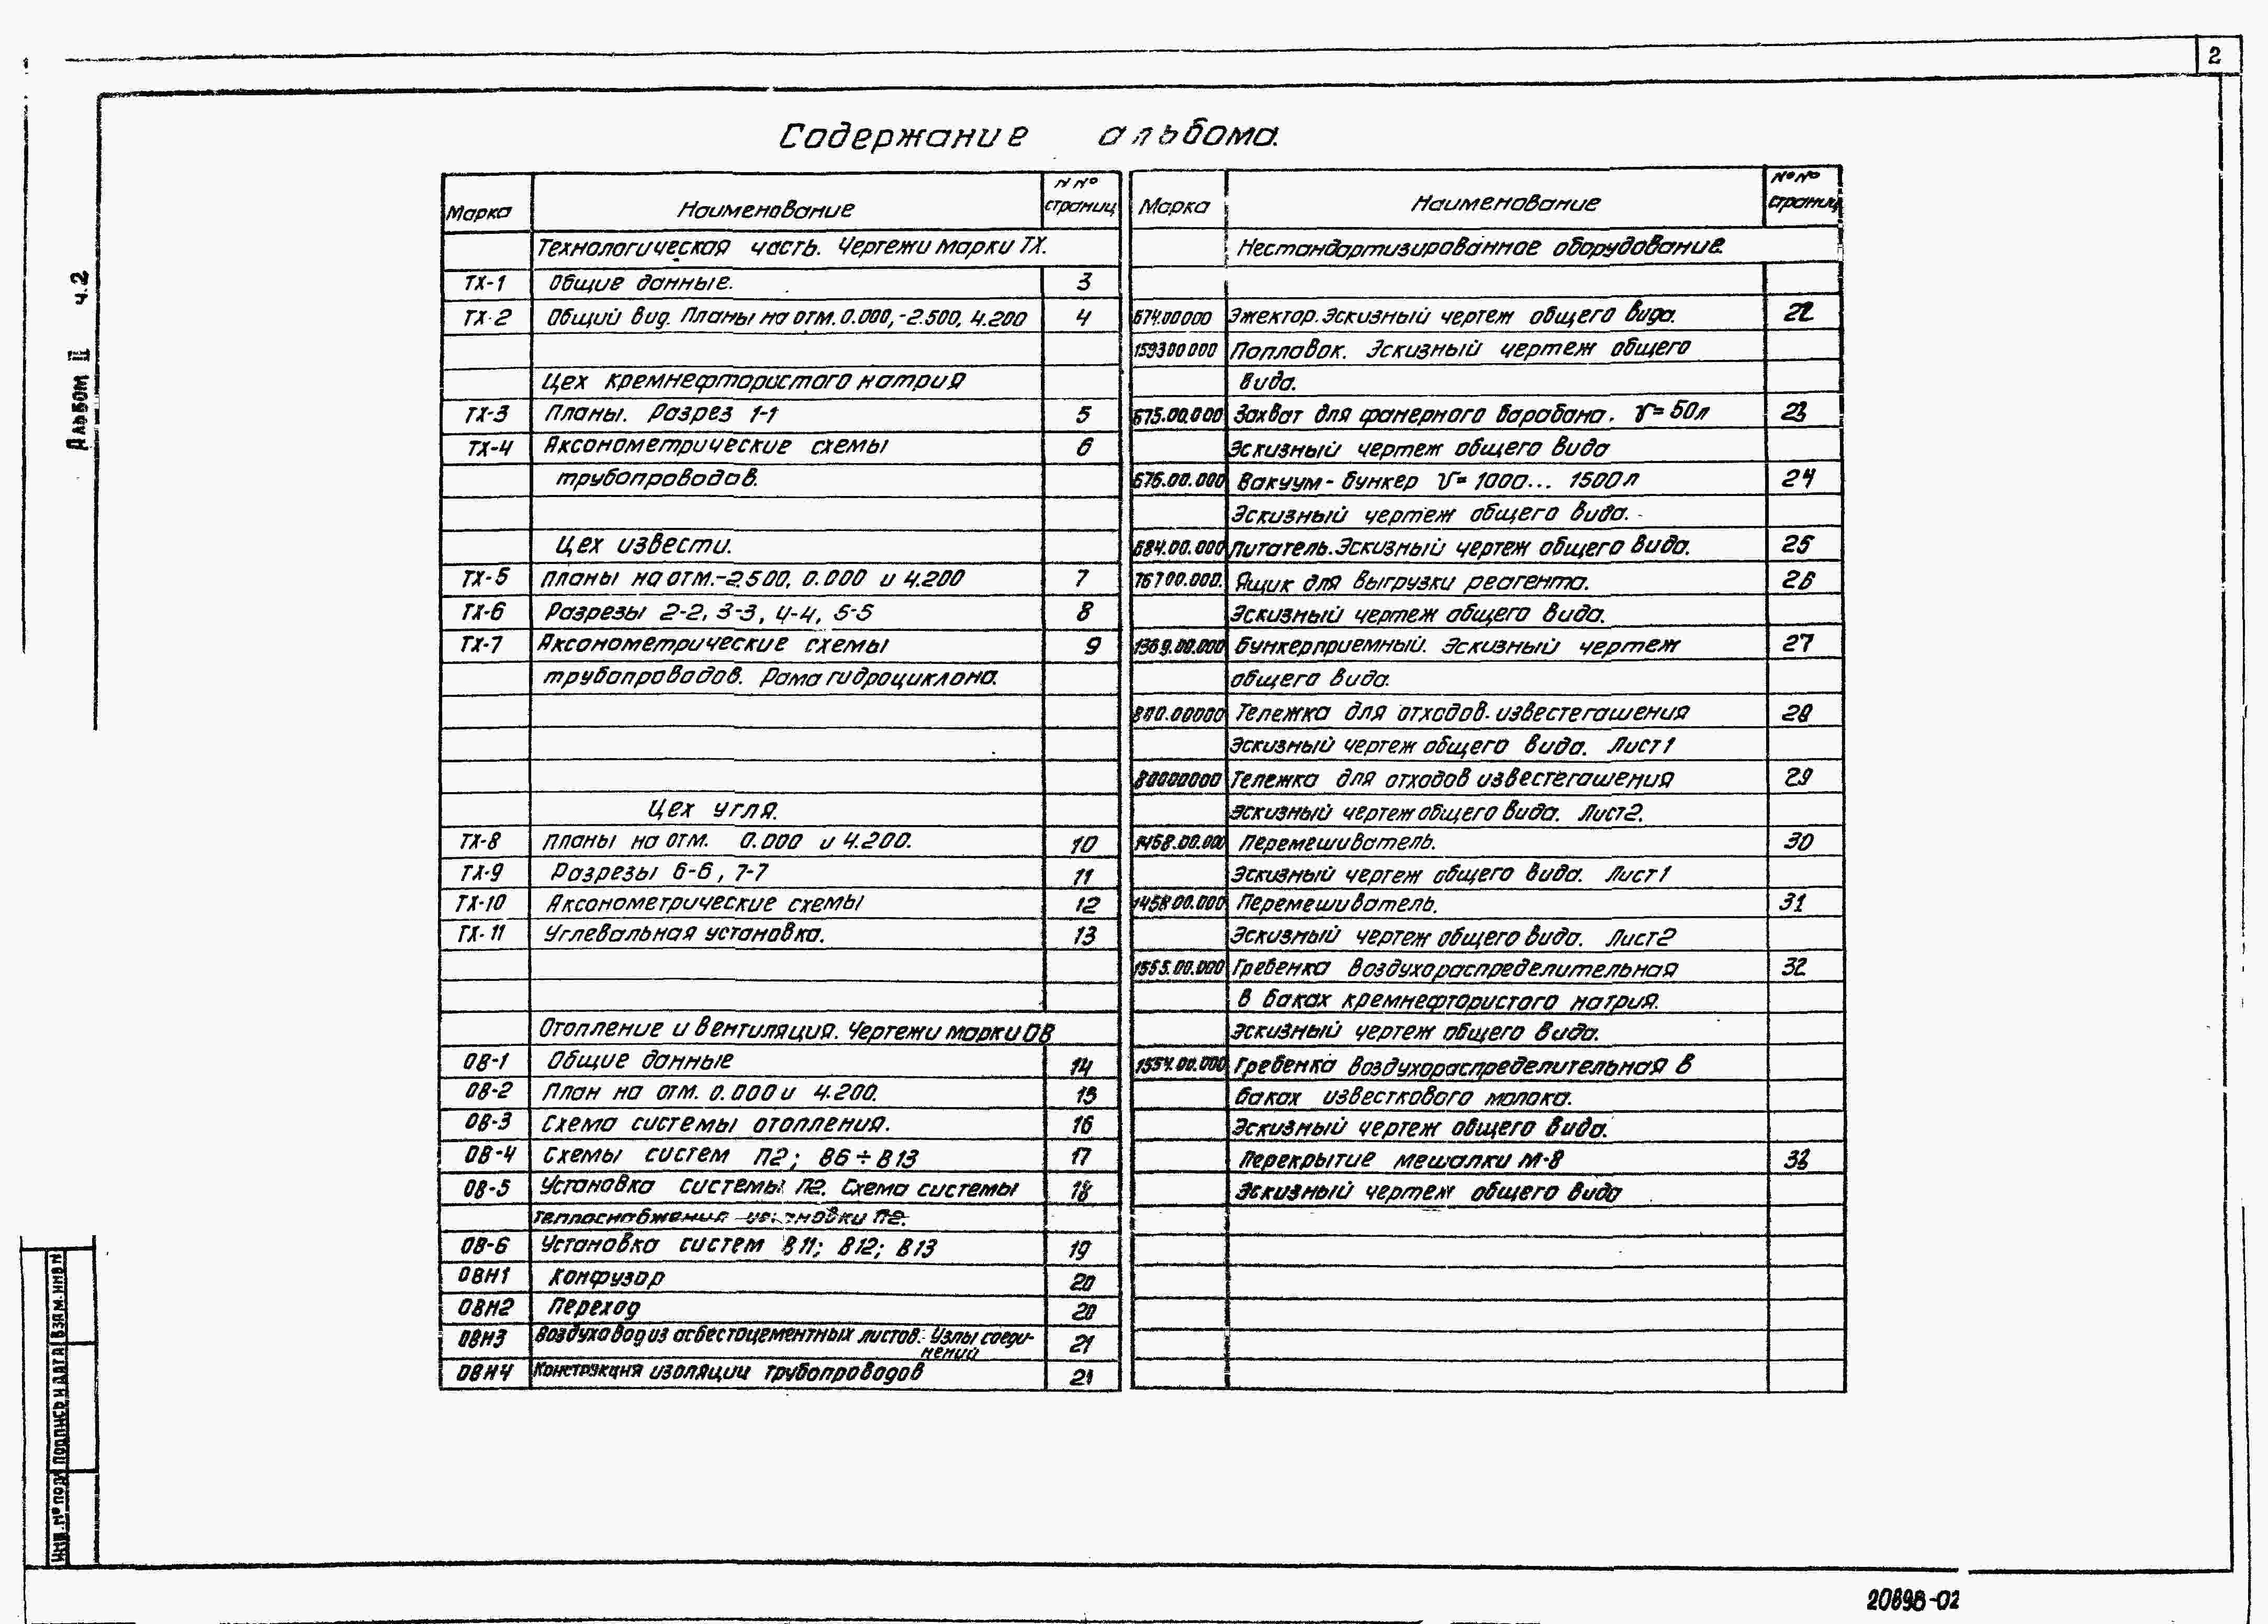 2
Содержание альбома.
Альбом II ч.2
Марка Наименование NNº страниц
Технологическая часть. Чертежи марки ТХ.
ТХ-1 Общие данные. 3
ТХ-2 Общий вид. Планы на отм. 0.000, -2.500, 4.200 4
Цех кремнефтористого натрия
ТХ-3 Планы. Разрез 1-1 5
ТХ-4 Аксонометрические схемы 6
трубопроводов.
Цех извести.
ТХ-5 Планы на отм. -2.500, 0.000 и 4.200 7
ТХ-6 Разрезы 2-2, 3-3, 4-4, 5-5 8
ТХ-7 Аксонометрические схемы 9
трубопроводов. Рама гидроциклона.
Цех угля.
ТХ-8 Планы на отм. 0.000 и 4.200. 10
ТХ-9 Разрезы 6-6, 7-7 11
ТХ-10 Аксонометрические схемы 12
ТХ-11 Углевальная установка. 13
Отопление и вентиляция. Чертежи марки ОВ
ОВ-1 Общие данные 14
ОВ-2 План на отм. 0.000 и 4.200. 15
ОВ-3 Схема системы отопления. 16
ОВ-4 Схемы систем П2; В6÷В13 17
ОВ-5 Установка системы П2. Схема системы 18
теплоснабжения установки П2.
ОВ-6 Установка систем В11; В12; В13 19
ОВН1 Конфузор 20
ОВН2 Переход 20
ОВН3 Воздуховод из асбестоцементных листов. Узлы соеди- 21
нений
ОВН4 Конструкция изоляции трубопроводов 21
Марка Наименование NºNº страниц
Нестандартизированное оборудование.
674.00000 Эжектор. Эскизный чертеж общего вида. 22
159300000 Поплавок. Эскизный чертеж общего
вида.
675.00.000 Захват для фанерного барабана. V=50л 23
Эскизный чертеж общего вида
676.00.000 Вакуум-бункер V=1000... 1500л 24
Эскизный чертеж общего вида.
684.00.000 Питатель. Эскизный чертеж общего вида. 25
76700.000. Ящик для выгрузки реагента. 26
Эскизный чертеж общего вида.
1369.00.000 Бункер приемный. Эскизный чертеж 27
общего вида.
800.00000 Тележка для отходов известегашения 28
Эскизный чертеж общего вида. Лист 1
80000000 Тележка для отходов известегашения 29
Эскизный чертеж общего вида. Лист 2.
1458.00.000 Перемешиватель. 30
Эскизный чертеж общего вида. Лист 1
1458 00.000 Перемешиватель. 31
Эскизный чертеж общего вида. Лист 2
1555.00.000 Гребенка воздухораспределительная 32
в баках кремнефтористого натрия.
Эскизный чертеж общего вида.
1554.00.000 Гребенка воздухораспределительная в
баках известкового молока.
Эскизный чертеж общего вида.
Перекрытие мешалки М-8 33
Эскизный чертеж общего вида
ИНВ. Nº ПОДЛ ПОДПИСЬ И ДАТА ВЗАМ. ИНВ N
20898-02